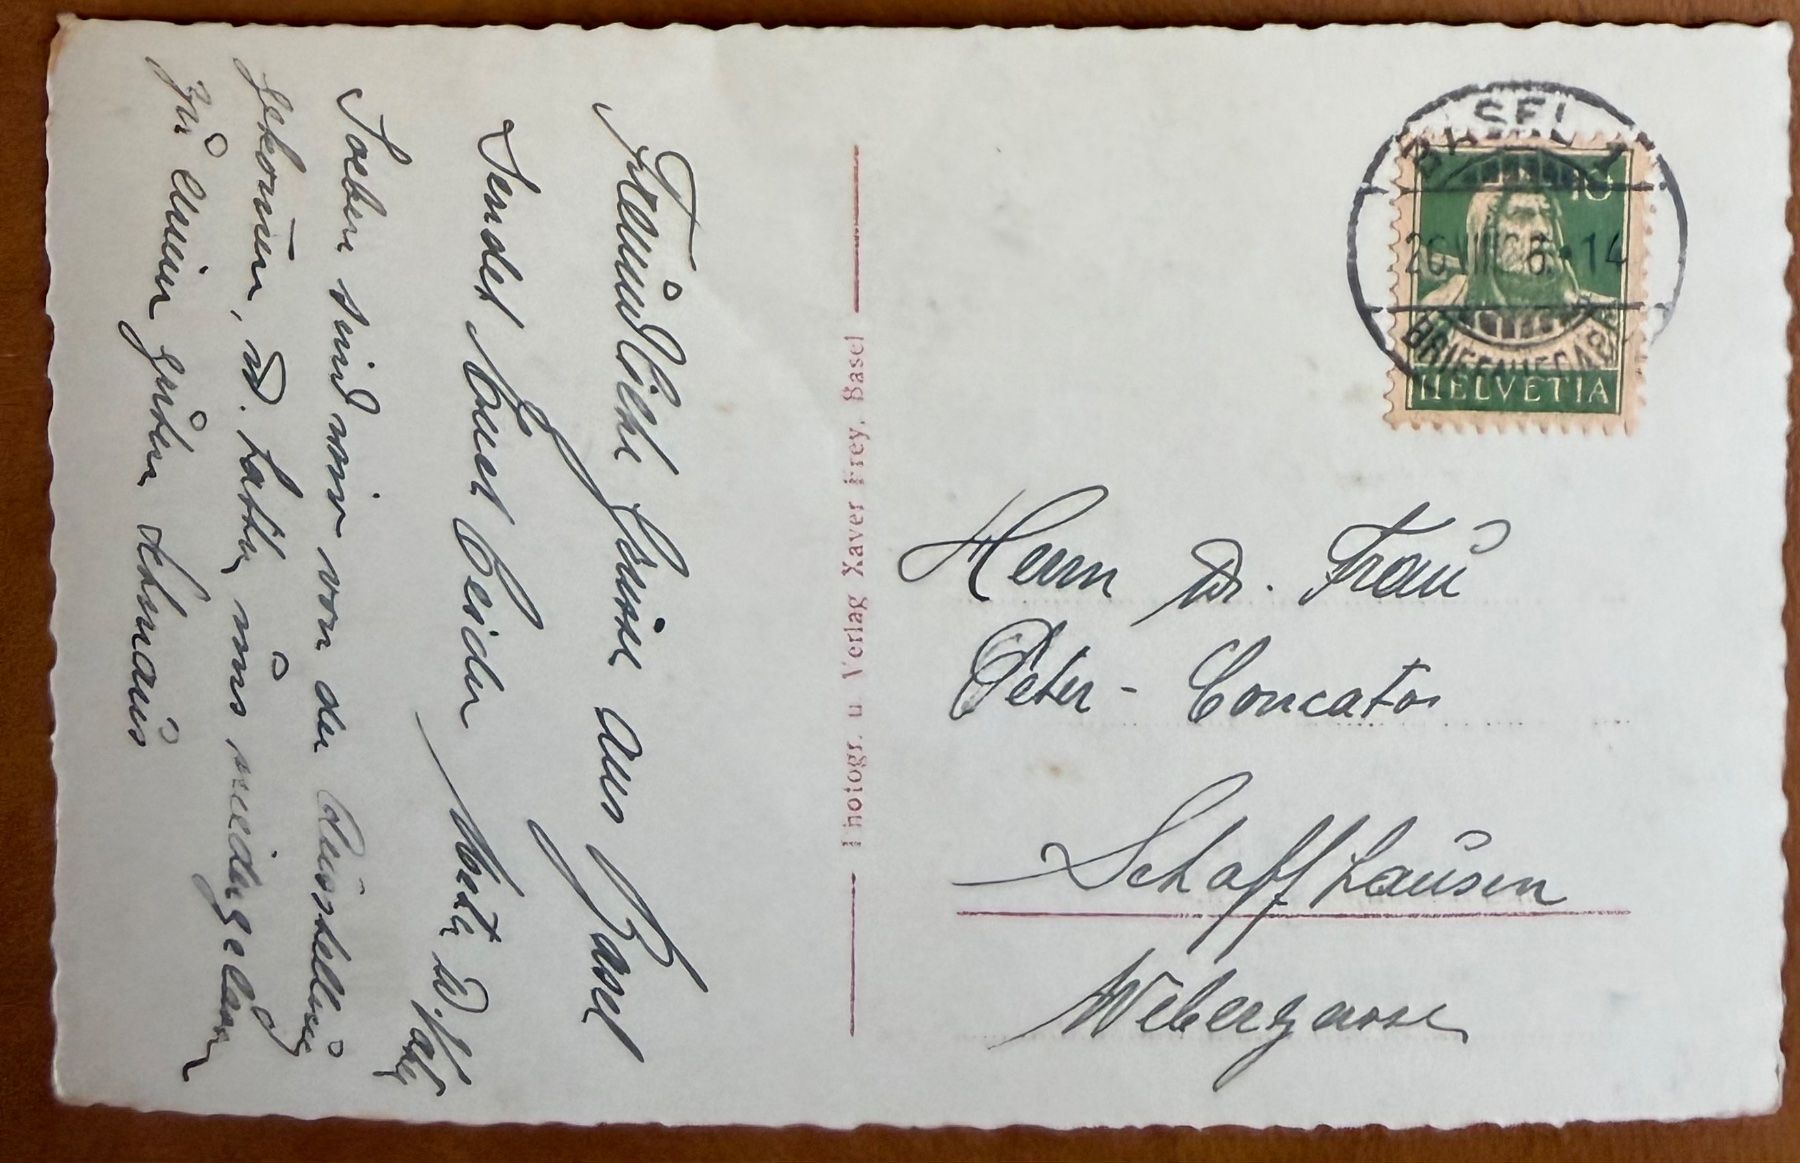 Freundliche Grüsse aus Basel
Sendet Euch beiden
Soeben sind wir von der Ausstellung
gekomen, u. hatten uns niedergelassen
zu einem guten schmaus
Photogr. u. Verlag Xaver Frey, Basel
BASEL 1
10
26.VIII.26.-14
BRIEFAUFGABE
HELVETIA
Herrn u. Frau
Peter - Concator
Schaffhausen
Webergasse